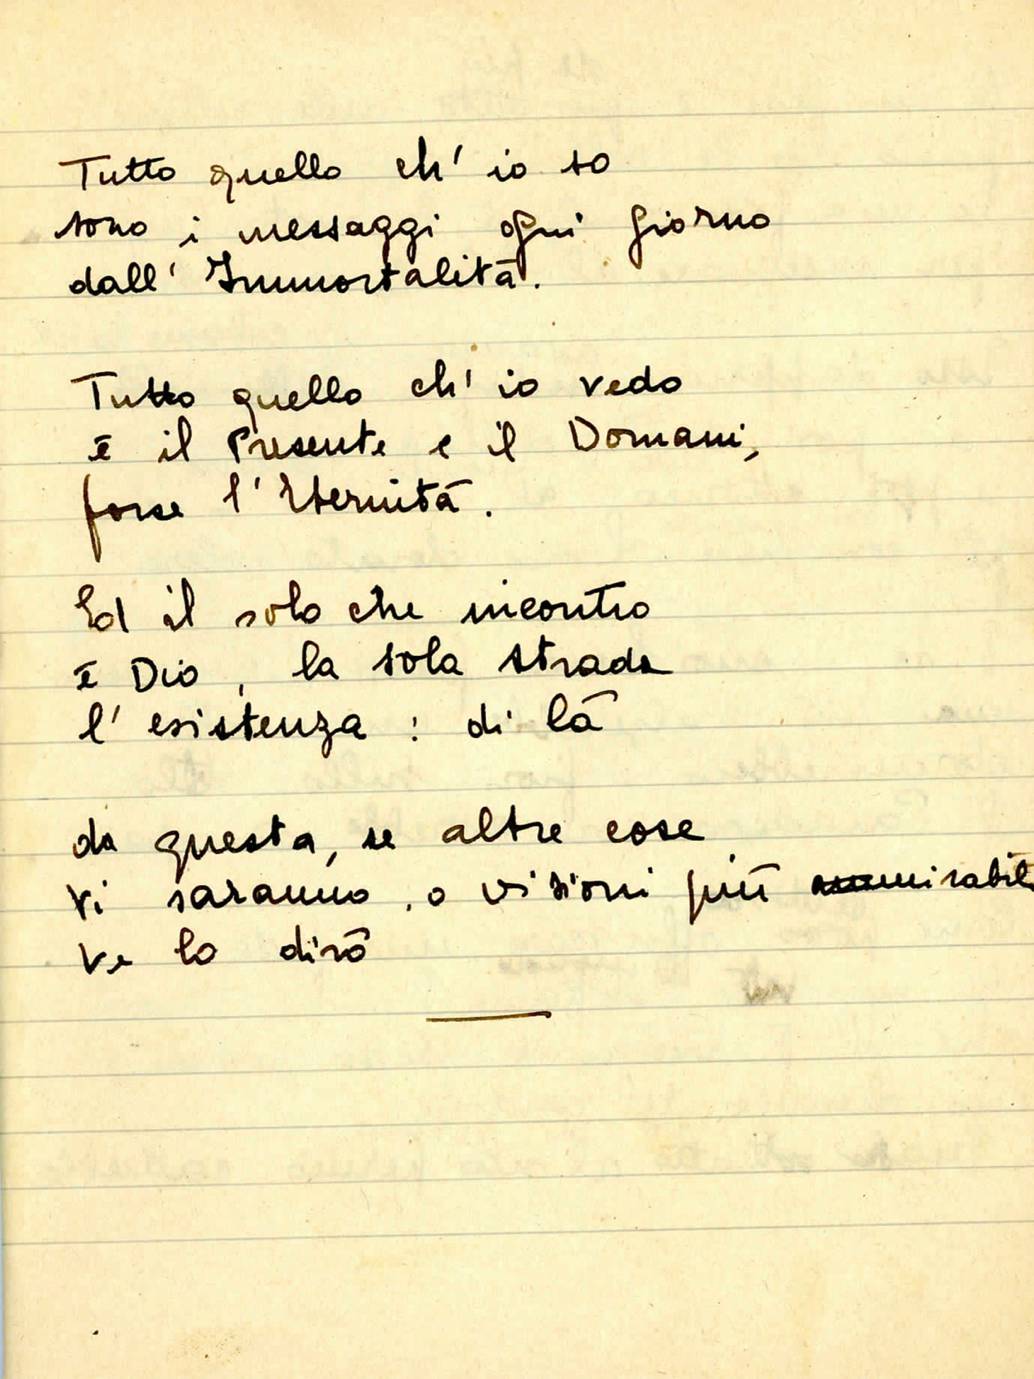 Tutto quello ch' io so
sono i messaggi ogni giorno
dall' Immortalità.
Tutto quello ch' io vedo
è il Presente e il Domani,
forse l' Eternità.
Ed il solo che incontro
è Dio, la sola strada
l' esistenza : di là
da questa, se altre cose
vi saranno, o visioni più mirabili
ve lo dirò